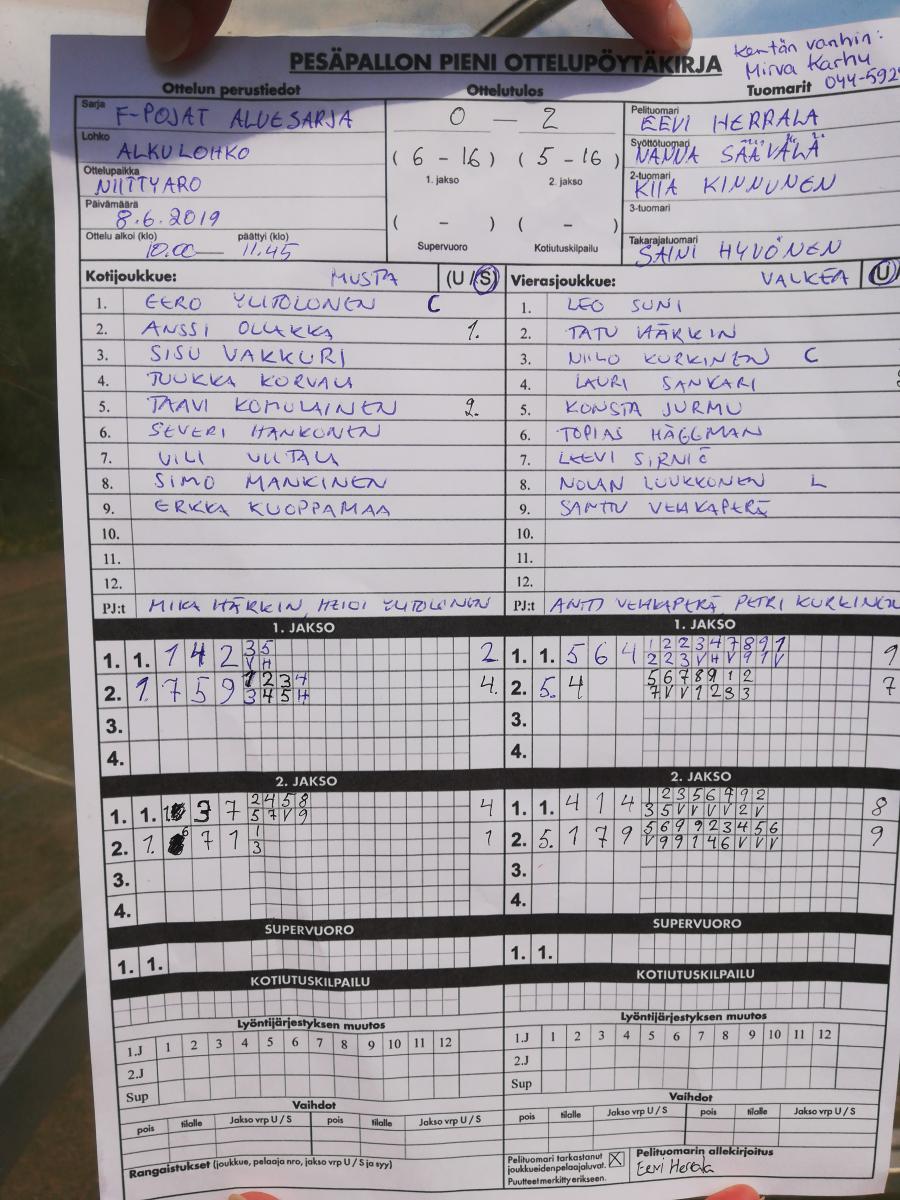 PESÄPALLON PIENI OTTELUPÖYTÄKIRJA
Kentän vanhin:
Mirva Karhu
044-592
Ottelun perustiedot
Ottelutulos
Tuomarit
Sarja F-POJAT ALUESARJA
Lohko ALKULOHKO
Ottelupaikka NIITTYARO
Päivämäärä 8.6.2019
Ottelu alkoi (klo) 10.00 — päättyi (klo) 11.45
0 — 2
(6 - 16) (5 - 16)
1. jakso 2. jakso
( - ) ( - )
Supervuoro Kotiutuskilpailu
Pelituomari EEVI HERRALA
Syöttötuomari NANNA SÄÄVÄLÄ
2-tuomari KIIA KINNUNEN
3-tuomari
Takarajatuomari SAINI HYVÖNEN
Kotijoukkue: MUSTA (U / S)
1. EERO YLITOLONEN C
2. ANSSI OLLAKKA 1.
3. SISU VAKKURI
4. TUUKKA KORVALA
5. TAAVI KOMULAINEN 2.
6. SEVERI HANKONEN
7. VILI VIITALA
8. SIMO MANKINEN
9. ERKKA KUOPPAMAA
10.
11.
12.
PJ:t MIKA HÄRKIN, HEIDI YLITOLONEN
Vierasjoukkue: VALKEA (U)
1. LEO SUNI
2. TATU HÄRKIN
3. NIILO KURKINEN C
4. LAURI SANKARI
5. KONSTA JURMU
6. TOPIAS HÄGGMAN
7. LEEVI SIRNIÖ
8. NOLAN LUUKKONEN L
9. SANTTU VEHKAPERÄ
10.
11.
12.
PJ:t ANTTI VEHKAPERÄ, PETRI KURKINEN
1. JAKSO
1. 1. 1 4 2 3 5 2
V H
2. 1. 7 5 9 1 2 3 4 4.
3 4 5 H
3.
4.
1. JAKSO
1. 1. 5 6 4 1 2 2 3 4 7 8 9 1 9
2 2 3 V H V 9 1 V
2. 5. 4 5 6 7 8 9 1 2 7
7 V V 1 2 3 3
3.
4.
2. JAKSO
1. 1. 3 7 2 4 5 8 4
5 7 V 9
2. 1. 6 7 1 1 1
3
3.
4.
2. JAKSO
1. 1. 4 1 4 1 2 3 5 6 9 9 2 8
3 5 V V V V 2 V
2. 5. 1 7 9 5 6 9 9 2 3 4 5 6 9
V 9 9 1 4 6 V V V
3.
4.
SUPERVUORO
1. 1.
SUPERVUORO
1. 1.
KOTIUTUSKILPAILU
KOTIUTUSKILPAILU
Lyöntijärjestyksen muutos
1.J 1 2 3 4 5 6 7 8 9 10 11 12
2.J
Sup
Lyöntijärjestyksen muutos
1.J 1 2 3 4 5 6 7 8 9 10 11 12
2.J
Sup
Vaihdot
pois tilalle Jakso vrp U / S pois tilalle Jakso vrp U / S
Vaihdot
pois tilalle Jakso vrp U / S pois tilalle Jakso vrp U / S
Rangaistukset (joukkue, pelaaja nro, jakso vrp U / S ja syy)
Pelituomari tarkastanut
joukkueidenpelaajaluvat. X
Puutteet merkitty erikseen.
Pelituomarin allekirjoitus
Eevi Herrala